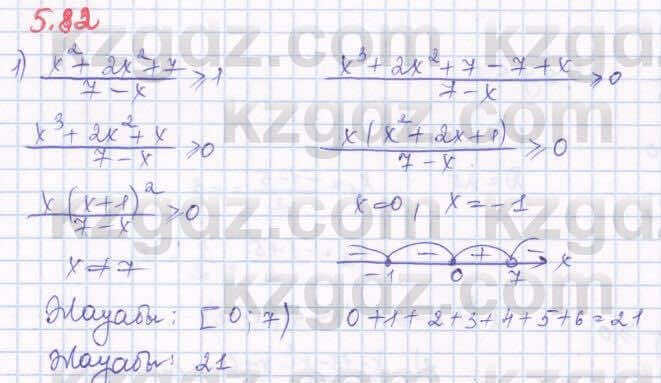 5.82
1) x² + 2x² + 7 / 7 - x ≥ 1    x³ + 2x² + 7 - 7 + x / 7 - x ≥ 0
x³ + 2x² + x / 7 - x ≥ 0    x(x² + 2x + 1) / 7 - x ≥ 0
x(x + 1)² / 7 - x ≥ 0    x = 0, x = -1
x ≠ 7    - - + - x
-1 0 7
Жауабы: [0; 7)    0 + 1 + 2 + 3 + 4 + 5 + 6 = 21
Жауабы: 21
kzgdz.com